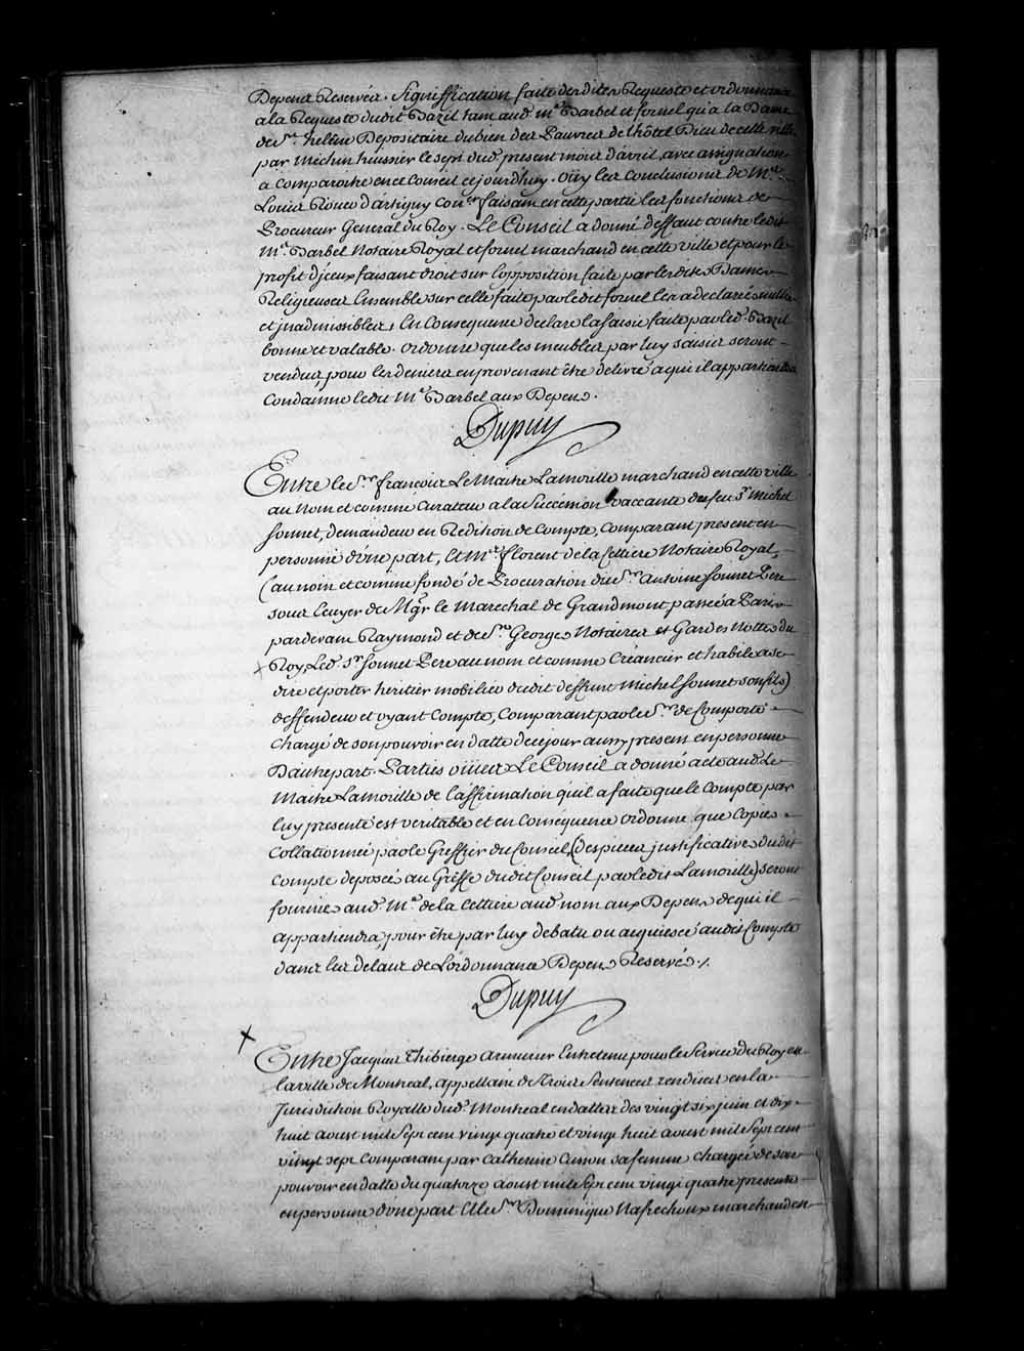 Depens Reservéz. Signiffication faite desdites Requeste et ordonnance
a la Requeste dudit Bazil tant aud. Me Barbel et fornel qu'a la Dame
de Ste helene Depositaire du bien des Pauvres de l'hôtel Dieu de cette ville
par Michin huissier le sept dud. present mois d'avril, avec assignation
a Comparoitre en ce Conseil cejourd'huy. Oüy les Conclusions de Me
Loüis Roüer d'artigny Coner faisant en cette partie les fonctions de
Procureur General du Roy. Le Conseil a donné deffaut contre ledit
Me Barbel Notaire Royal et fornel marchand en cette ville et pour le
profit d'jceux faisant droit sur l'opposition faite par lesdites Dames
Religieuses Ensemble sur celle faite par ledit fornel les a declarées nulles
et jnadmissibles, En Consequence declare la saisie faite par led. Bazil
bonne et valable. ordonne que les meubles par luy saisis seront
vendus, pour les deniers en provenant être delivré a qui il appartiendra
Condamne ledit Me Barbel aux Depens.
Dupuy
Entre le Sr. françois Le Maitre Lamorille marchand en cette ville
au Nom et comme Curateur a la Succession vaccante de feu Sr Michel
Sonnet, demandeur en Reddition de Compte, Comparant present en
personne d'une part, Et Me florent de la Cettiere Notaire Royal,
(au nom et comme fondé de Procuration du Sr. Antoine Sonnet Pere
sous Ecuyer de Mgr le Marechal de Grandmont passée a Paris
pardevant Raymond et de St Georges Notaires et Gardes Nottes du
Roy, Led. Sr Sonnet Pere au nom et comme Créancier et habile a se
dire et porter heritier mobilier dudit deffunt Michel Sonnet son fils)
deffendeur et oyant Compte, Comparant par le Sr. de Comporté
chargé de son pouvoir en datte de ce jour aussy present en personne
D'autre part. Parties oüies Le Conseil a donné acte aud. Le
Maitre Lamorille de l'affirmation qu'il a faite que le Compte par
luy presenté est veritable et en Consequence ordonne que Copies
Collationnée par le Greffier du Conseil (des pieces justificatives dudit
Compte deposeé au Greffe dudit Conseil par ledit Lamorille) seront
fournies aud. Me de la Cettiere aud. nom aux Depens de qui il
appartiendra, pour être par luy debatu ou acquiescé audit Compte
dans les delaix de L'ordonnance Depens Reservés ./.
Dupuy
Entre Jacques Thibierge Armurier Entretenu pour le Service du Roy en
la ville de Montreal, appellant de Trois Sentences rendües en la
Jurisdiction Royalle dud. Montreal en dattes des vingt six juin et dix
huit aoust mil Sept cent vingt quatre et vingt huit aoust mil Sept cent
vingt sept Comparant par Catherine Cusson sa femme chargée de son
pouvoir en datte du quatorze aoust mil Sept cent vingt quatre presente
en personne d'une part Et le Sr. Dominique Nafrechoux marchand en